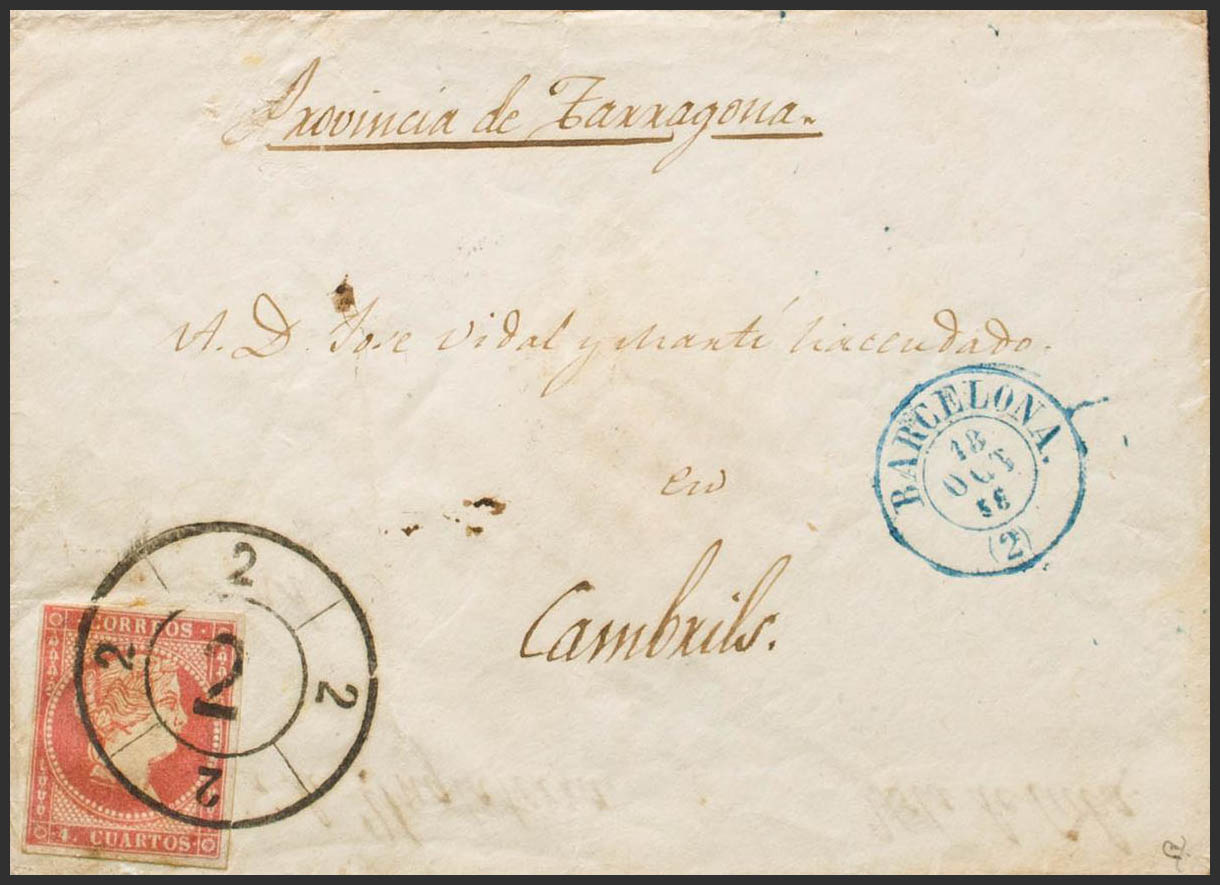 Provincia de Tarragona.
A. D. Jose Vidal y Marti haccudado.
en
Cambrils.
BARCELONA.
18
OCT
58
(2)
2
2
2
2
2
CORREOS
4. CUARTOS